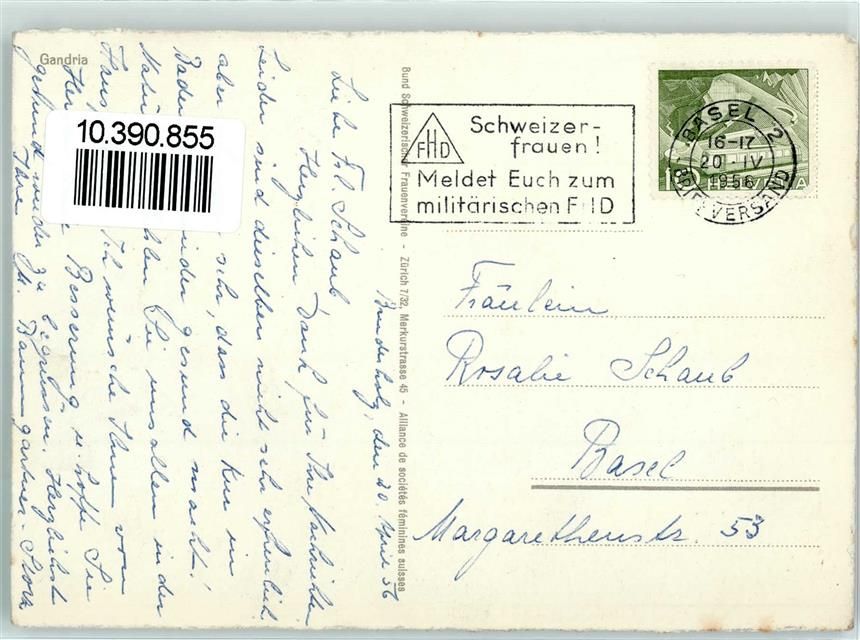 Gandria
10.390.855
Bruderholz, den 20. April 56
Liebe Frl. Schaub
Herzlichen Dank für Ihre Nachrichten
Leider sind dieselben nicht sehr erfreulich
aber sehr, dass die Kur in
Baden gesund macht!
Natür Sie uns allen in der
Haus Ich wünsche Ihnen von
Her Besserung u. hoffe Sie
gesund wieder zu begrüssen. Herzlichst
Ihre Fr. Baumgartner-Stork
Bund Schweizerischer Frauenvereine - Zürich 7/32, Merkurstrasse 45 - Alliance de sociétés féminines suisses
FHD
Schweizer-
frauen!
Meldet Euch zum
militärischen FHD
BASEL 2
16-17
20 IV
1956
BRIEFVERSAND
10
HELVETIA
Fräulein
Rosalie Schaub
Basel
Margarethenstr. 53